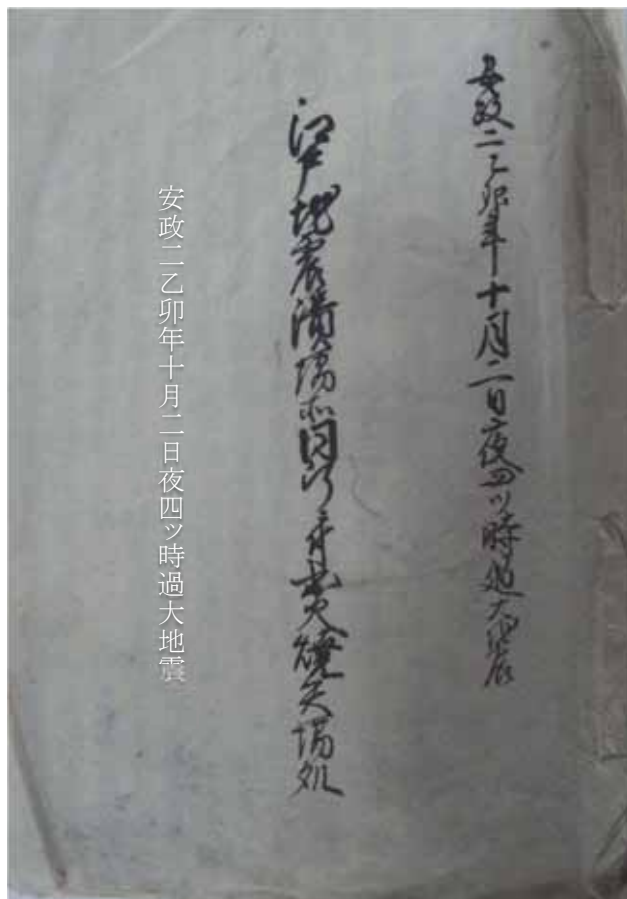 安政二乙卯年十月二日夜四ツ時過大地震
江戸地震潰場所同行出火焼失場処
安政二乙卯年十月二日夜四ツ時過大地震